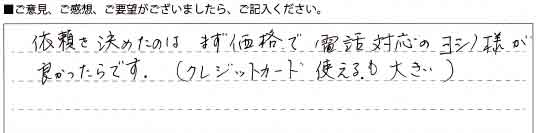 ■ご意見、ご感想、ご要望がございましたら、ご記入ください。
依頼を決めたのは まず価格で 電話対応のヨシノ様が
良かったらです. (クレジットカード 使える.も 大きい)